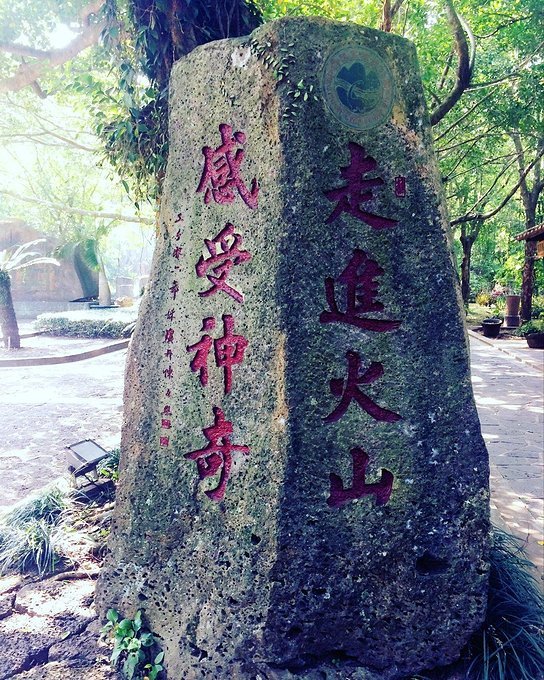 走進火山
感受神奇